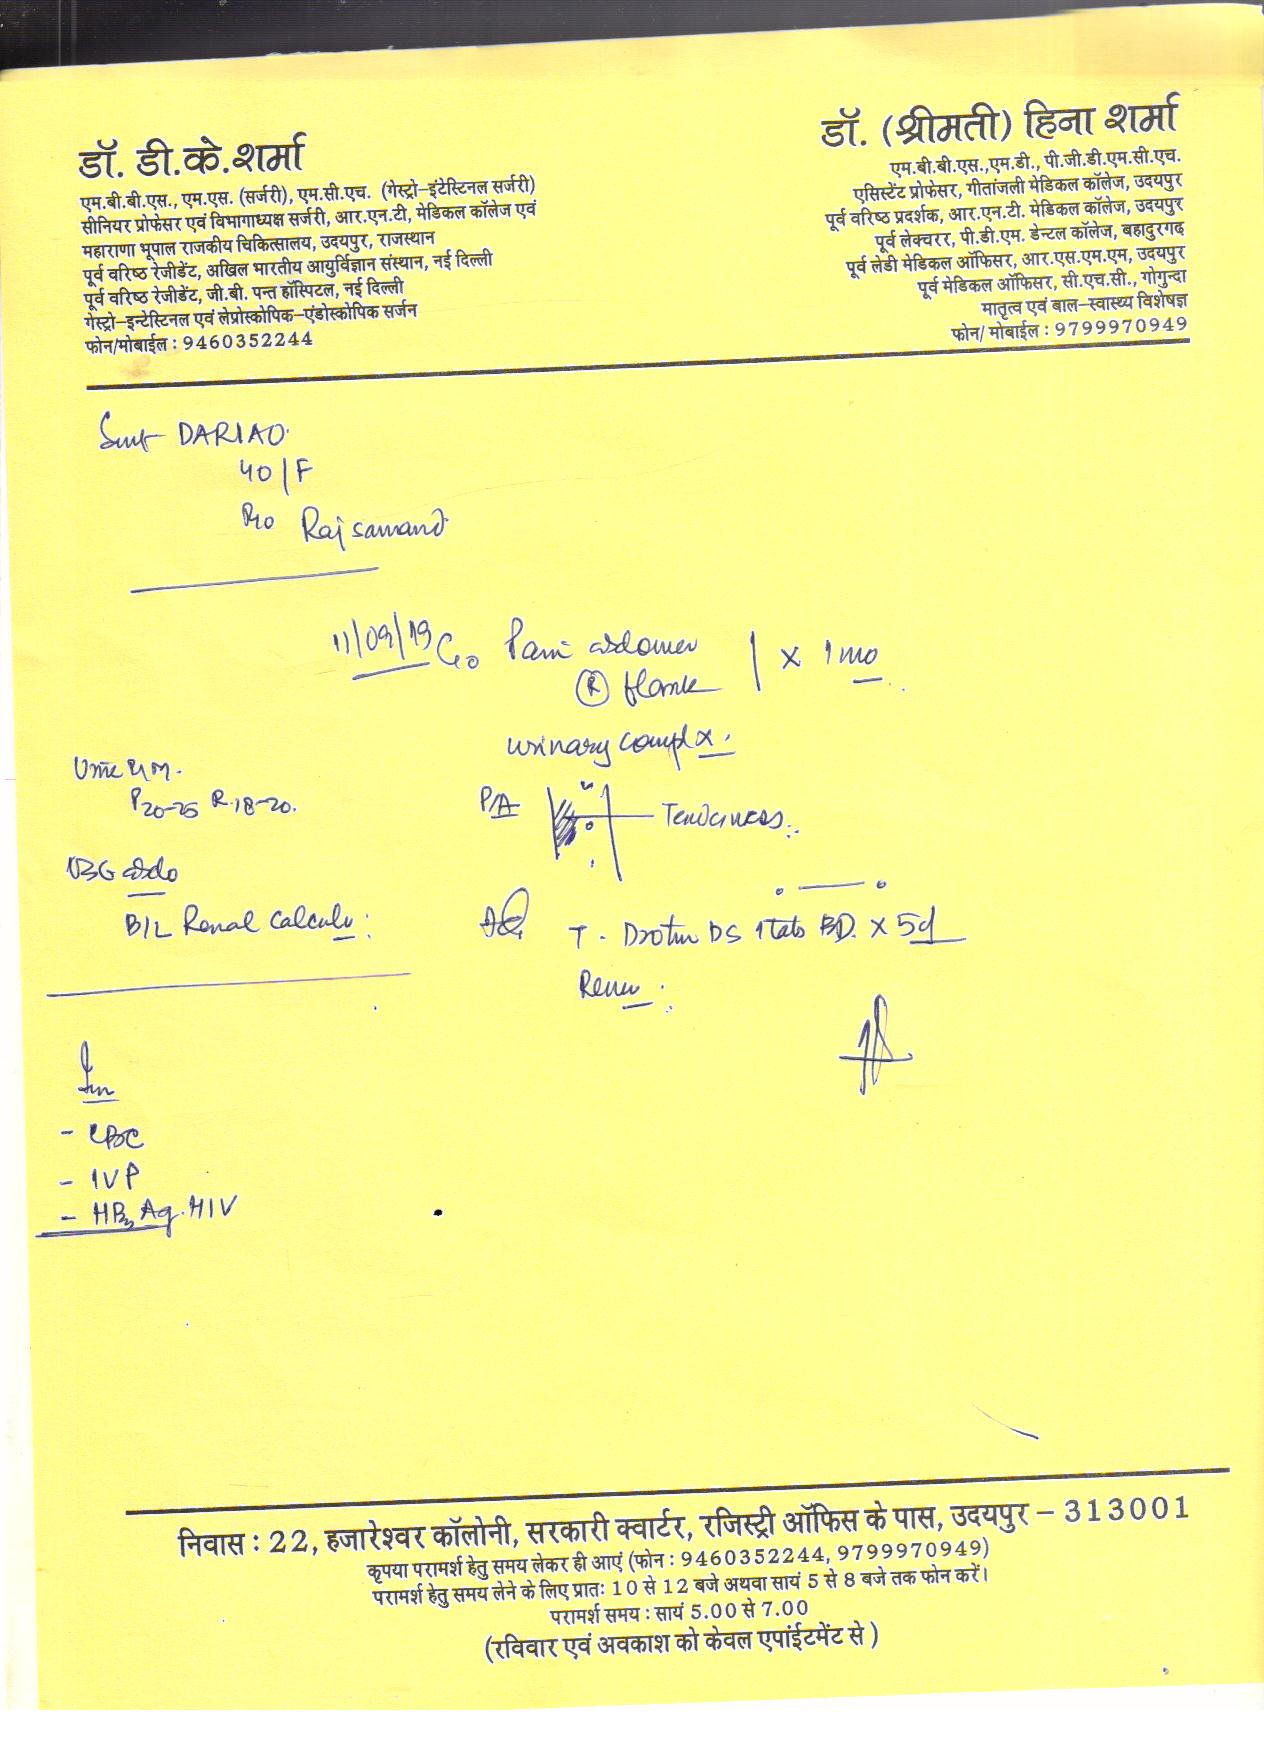 डॉ. डी.के.शर्मा
एम.बी.बी.एस., एम.एस. (सर्जरी), एम.सी.एच. (गेस्ट्रो-इंटेस्टिनल सर्जरी)
सीनियर प्रोफेसर एवं विभागाध्यक्ष सर्जरी, आर.एन.टी, मेडिकल कॉलेज एवं
महाराणा भूपाल राजकीय चिकित्सालय, उदयपुर, राजस्थान
पूर्व वरिष्ठ रेजीडेंट, अखिल भारतीय आयुर्विज्ञान संस्थान, नई दिल्ली
पूर्व वरिष्ठ रेजीडेंट, जी.बी. पन्त हॉस्पिटल, नई दिल्ली
गेस्ट्रो-इन्टेस्टिनल एवं लेप्रोस्कोपिक-एंडोस्कोपिक सर्जन
फोन/मोबाईल : 9460352244
डॉ. (श्रीमती) हिना शर्मा
एम.बी.बी.एस.,एम.डी., पी.जी.डी.एम.सी.एच.
एसिस्टेंट प्रोफेसर, गीतांजली मेडिकल कॉलेज, उदयपुर
पूर्व वरिष्ठ प्रदर्शक, आर.एन.टी. मेडिकल कॉलेज, उदयपुर
पूर्व लेक्चरर, पी.डी.एम. डेन्टल कॉलेज, बहादुरगढ़
पूर्व लेडी मेडिकल ऑफिसर, आर.एस.एम.एम, उदयपुर
पूर्व मेडिकल ऑफिसर, सी.एच.सी., गोगुन्दा
मातृत्व एवं बाल-स्वास्थ्य विशेषज्ञ
फोन/ मोबाईल : 9799970949
Smt DARIAO.
40/F
R/o Rajsamand
11/09/19 C/o Pain abdomen
(R) flank | x 1 mo
urinary compl x.
Urine R/M.
P 20-25 R 18-20.
P/A Tenderness
USG abdo
B/L Renal calculi
T. Drotin DS 1 tab BD. x 5d
Review
Inv
- CBC
- IVP
- HBsAg. HIV
निवास : 22, हजारेश्वर कॉलोनी, सरकारी क्वार्टर, रजिस्ट्री ऑफिस के पास, उदयपुर - 313001
कृपया परामर्श हेतु समय लेकर ही आएं (फोन : 9460352244, 9799970949)
परामर्श हेतु समय लेने के लिए प्रातः 10 से 12 बजे अथवा सायं 5 से 8 बजे तक फोन करें।
परामर्श समय : सायं 5.00 से 7.00
(रविवार एवं अवकाश को केवल एपांईटमेंट से )